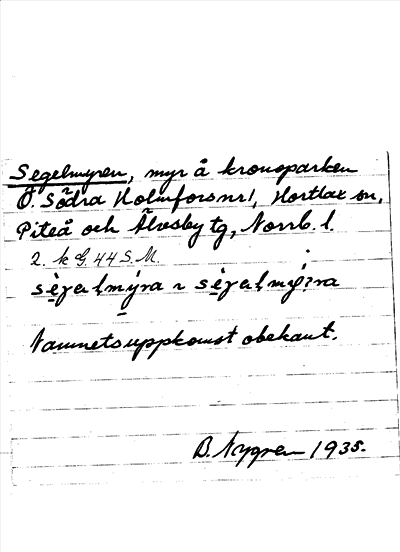 Segelmyren, myr å kronoparken
Ö. Södra Holmfors nr 1, Hortlax sn,
Piteå och Älvsby tg, Norrb. l.
2. k G. 44 S.M.
sègəl mýra ~ sègəl mýra
Namnets uppkomst obekant.
B. Nygren 1935.